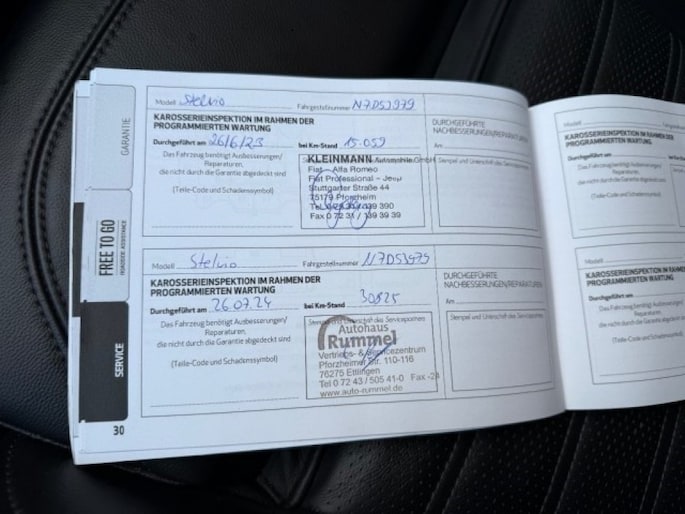 GARANTIE
FREE TO GO
SERVICE
30
Modell Stelvio Fahrgestellnummer N7D53979
KAROSSERIEINSPEKTION IM RAHMEN DER
PROGRAMMIERTEN WARTUNG
Durchgeführt am 26/6/23 bei Km-Stand 15.059
Das Fahrzeug benötigt Ausbesserungen/
Reparaturen,
die nicht durch die Garantie abgedeckt sind
(Teile-Code und Schadenssymbol)
KLEINMANN Automobile GmbH
Fiat – Alfa Romeo
Fiat Professional – Jeep
Stuttgarter Straße 44
75179 Pforzheim
Fax 0 72 31 / 139 39 39
DURCHGEFÜHRTE
NACHBESSERUNGEN/REPARATUREN
Am
Stempel und Unterschrift des Servicepartners
Modell Stelvio Fahrgestellnummer N7D53979
KAROSSERIEINSPEKTION IM RAHMEN DER
PROGRAMMIERTEN WARTUNG
Durchgeführt am 26.07.24 bei Km-Stand 30825
Das Fahrzeug benötigt Ausbesserungen/
Reparaturen,
die nicht durch die Garantie abgedeckt sind
(Teile-Code und Schadenssymbol)
Autohaus
Rummel
Vertriebs- & Servicezentrum
Pforzheimer Str. 110-116
76275 Ettlingen
Tel 0 72 43 / 505 41-0 Fax -24
www.auto-rummel.de
DURCHGEFÜHRTE
NACHBESSERUNGEN/REPARATUREN
Am
Stempel und Unterschrift des Servicepartners
Modell
KAROSSERIEINSPEKTION IM RAHMEN DER
PROGRAMMIERTEN WARTUNG
Durchgeführt am
Das Fahrzeug benötigt Ausbesserungen/
Reparaturen,
die nicht durch die Garantie abgedeckt sind
(Teile-Code und Schadenssymbol)
Modell
KAROSSERIEINSPEKTION IM RAHMEN DER
PROGRAMMIERTEN WARTUNG
Durchgeführt am
Das Fahrzeug benötigt Ausbesserungen/
Reparaturen,
die nicht durch die Garantie abgedeckt sind
(Teile-Code und Schadenssymbol)